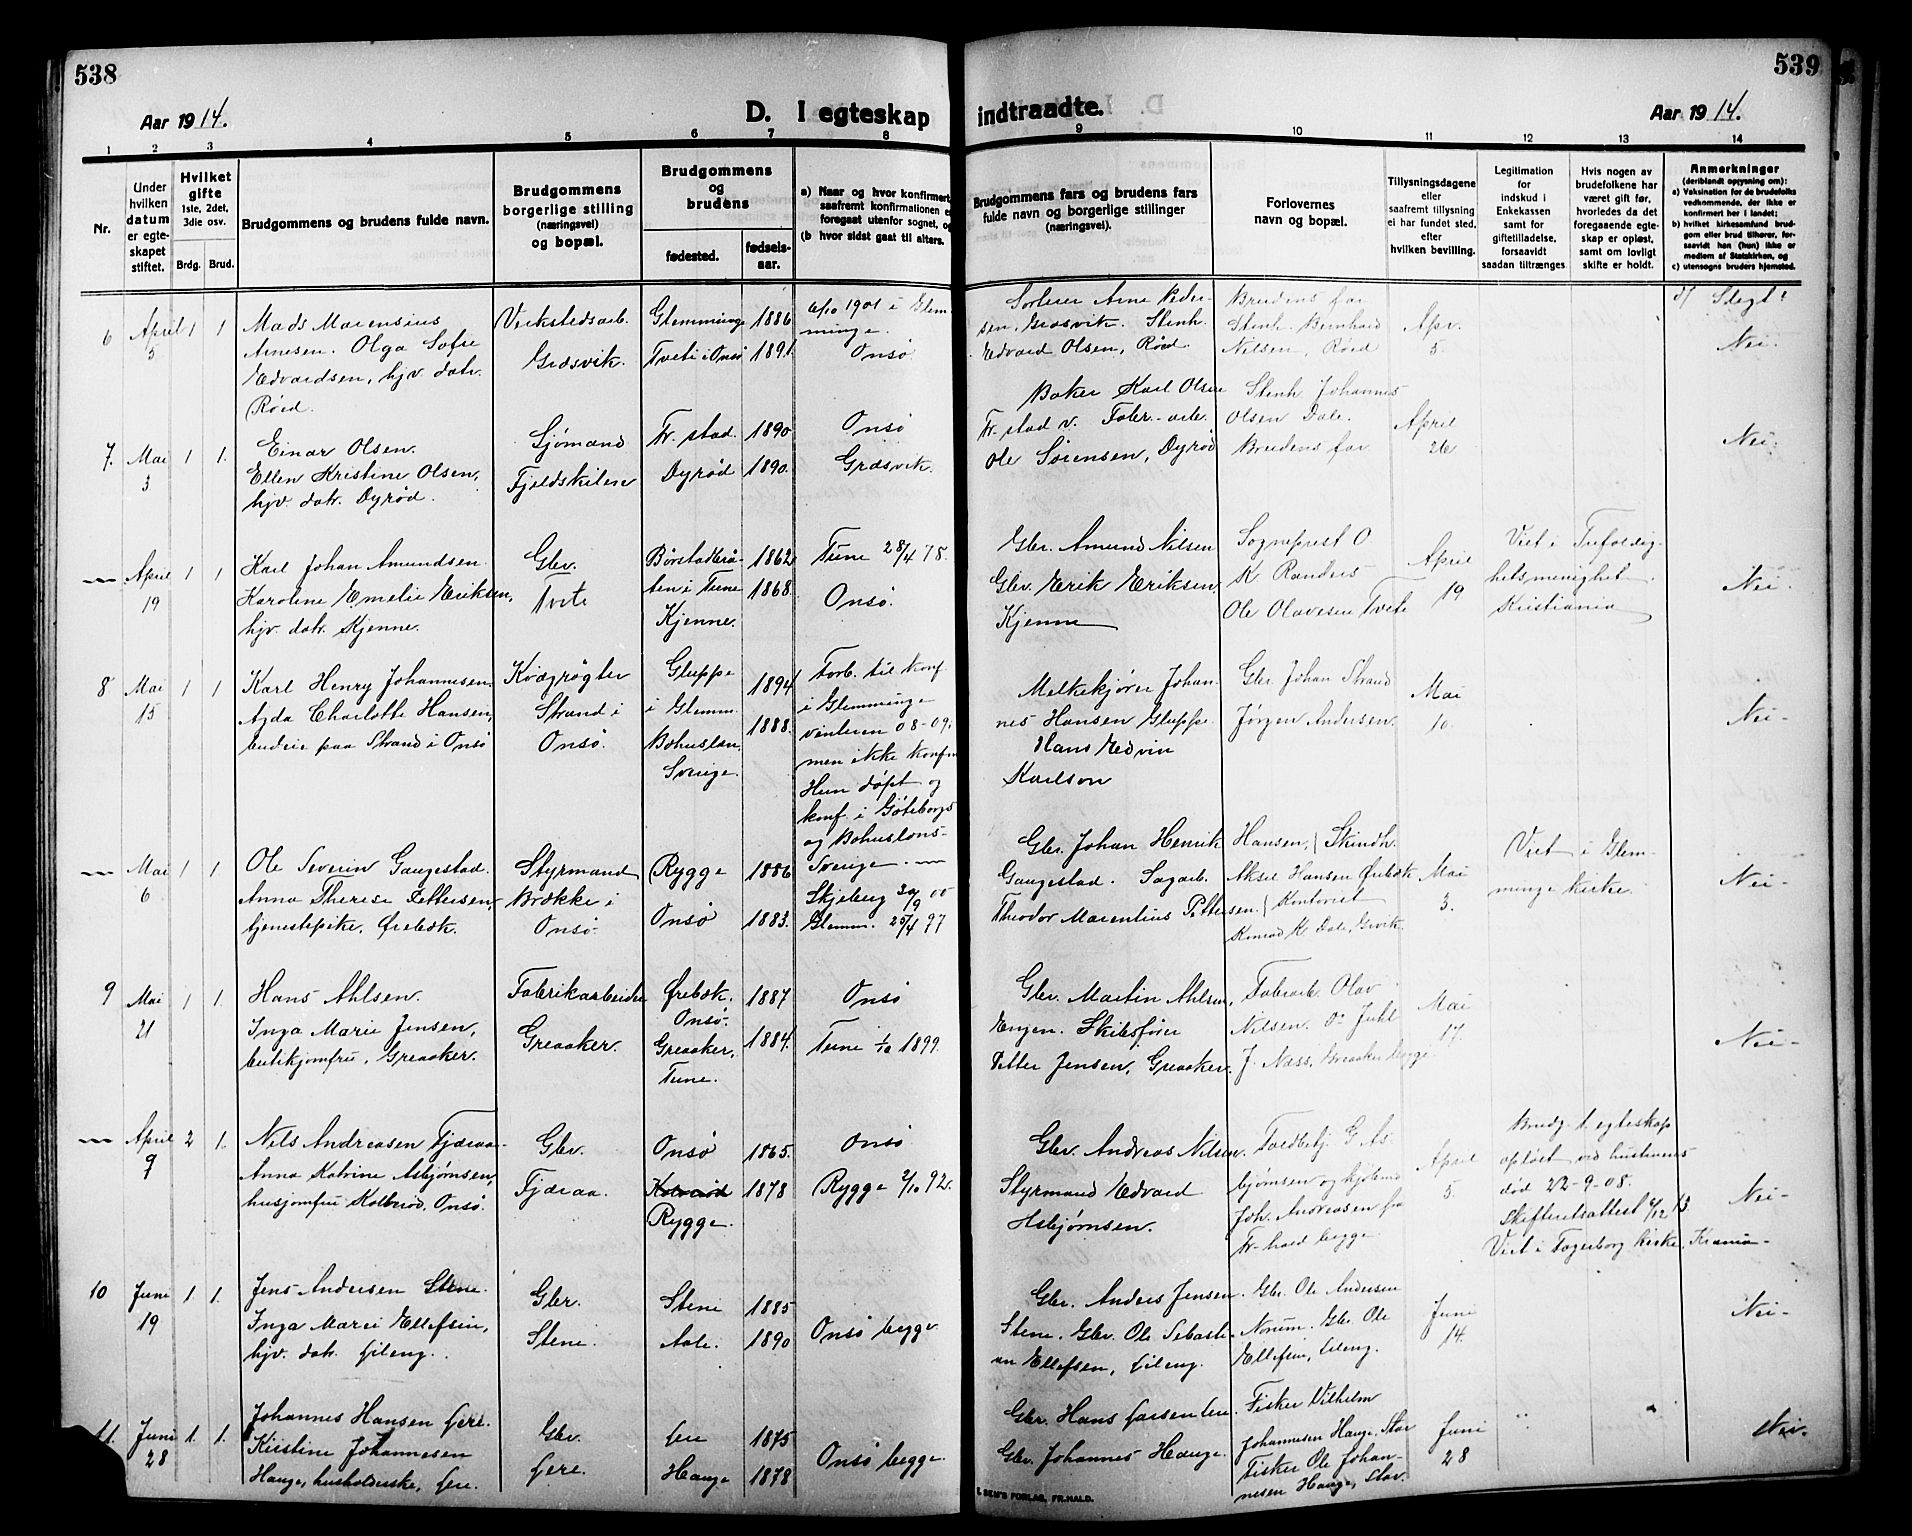 538
539
Aar 1914.
D. I egteskap indtraadte.
Aar 1914.
1 2 3 4 5 6 7 8 9 10 11 12 13 14
Nr.
Under hvilken datum er egteskapet stiftet.
Hvilket gifte 1ste, 2det, 3die osv.
Brdg. Brud.
Brudgommens og brudens fulde navn.
Brudgommens borgerlige stilling (næringsvei) og bopæl.
Brudgommens og brudens
fødested.
fødselsaar.
a) Naar og hvor konfirmert, saafremt konfirmationen er foregaat utenfor sognet, og
(b hvor sidst gaat til alters.
Brudgommens fars og brudens fars fulde navn og borgerlige stillinger (næringsvei).
Forlovernes navn og bopæl.
Tillysningsdagene eller saafremt tillysning ei har fundet sted, efter hvilken bevilling.
Legitimation for indskud i Enkekassen samt for giftetilladelse, forsaavidt saadan tiltrænges
Hvis nogen av brudefolkene har været gift før, hvorledes da det foregaaende egteskap er opløst, samt om lovligt skifte er holdt.
Anmerkninger (deriblandt opjysning om):
a) Vaksination for de brudefolks vedkommende, der ikke er konfirmert her i landet;
b) hvilket kirkesamfund brudgom eller brud tilhører, forsaavidt han (hun) ikke er medlem af Statskirken, og
c) utensogns bruders hjemsted.
6 April 5 1 1
Mads Marensius
Arnesen. Olga Sofie
Edvardsen, hjv. datr.
Røed.
Verkstedsarb.
Græsvik.
Glemminge 1886
Tveti i Onsø 1891.
6/10 1901 i Glemminge.
Onsø
Sorterer Arne Pedersen, Græsvik. Stenh.
Edvard Olsen, Røed.
Brudens far
Stenh. Bernhard
Nilsen, Røed
Apr. 5.
Slegt?
Nei.
7. Mai 3 1 1.
Einar Olsen.
Ellen Kristine Olsen,
hjv. datr. Dyrød.
Sjømand
Fjeldskilen
Fr.stad. 1890
Dyrød 1890.
Onsø
Græsvik.
Baker Karl Olsen
Fr.stad v. Fabr.-arb.
Ole Sørensen, Dyrød
Stenh. Johannes
Olsen Dale.
Brudens far
April 26
Nei.
— April 19 1 1
Karl Johan Amundsen
Karoline Emelie Eriksen,
hjv. datr. Kjenne.
Gbr.
Tvete
Børstadbråten i Tune 1862
Kjenne. 1868.
Tune 28/4 78.
Onsø.
Gbr. Amund Nilsen
Gbr. Erik Eriksen
Kjenne
Sogneprest O
K Randers
Ole Olavesen Tvete
April 19
Viet i Trefoldighetsmenighet
Kristiania
Nei.
8 Mai 15 1 1
Karl Henry Johannesen.
Agda Charlotte Hansen,
budeie paa Strand i Onsø
Kvægrøgter
Strand i
Onsø.
Gluppe
i Glemm. 1894
Bohuslan. 1888.
Sverige.
Forb. til konf
i Glemminge
vinteren 08-09,
men ikke konf.
Hun døpt og
konf i Gøteborgs
og Bohuslans-
Sverige.
Melkekjører Johannes Hansen Gluppe.
Hans Edvin
Karlson
Gbr. Johan Strand
Jørgen Andersen.
Mai 10.
Nei-
— Mai 6 1 1.
Ole Severin Gaugestad.
Anna Therese Pettersen,
tjenestepike, Ørebæk.
Styrmand
Brække i
Onsø.
Rygge 1886
Onsø 1883.
Skjeberg 30/9 00
Glemm. 25/4 97
Gbr. Johan Henrik
Gaugestad. Sagarb.
Theodor Marentius Pettersen.
Hansen, Skindh.
Aksel Hansen Ørebæk
Kontorist
Konrad K. Dale, Gr.vik
Mai 3.
Viet i Glemminge kirke.
Nei-
9 Mai 21 1 1.
Hans Ahlsen.
Inga Marie Jensen,
butikjomfru, Greaaker.
Fabrikarbeider
Greaaker.
Ørebæk. 1887
Onsø.
Greaaker, 1884.
Tune.
Onsø
Tune 1/10 1899.
Gbr. Martin Ahlsen,
Engen. Skibsfører
Petter Jensen, Greaaker.
Fabrarb. Olav
Nilsen. Juhl
J. Næss, Greaaker begge.
Mai 17.
Nei-
— April 9 2 1.
Nils Andreasen Fjæraa.
Anna Katrine Asbjørnsen,
husjomfru Kolbrød, Onsø.
Gbr.
Fjæraa.
Onsø 1865.
Kolbrød 1878
Rygge.
Onsø
Rygge 2/10 92.
Gbr. Andreas Nilsen.
Styrmand Edvard
Asbjørnsen.
G. Asbjørnsen og
Joh. Andreasen fra
Fr.hald begge.
April 5.
Brudg. 1. egteskap
opløst ved hustruens
død 22-9-08.
Skifteretsattest 4/12 13.
Viet i Fagerborg kirke, Krania-
Nei-
10 Juni 19 1 1.
Jens Andersen Stene.
Inga Marie Ellefsen,
hjv. datr. Lileng.
Gbr.
Stene.
Stene 1885
Aale. 1890
Onsø begge
Gbr. Anders Jensen
Stene. Gbr. Ole Sebastian Ellefsen, Lileng.
Gbr. Ole Andersen
Norum. Gbr. Ole
Ellefsen, Lileng.
Juni 14.
Nei-
11. Juni 28 1. 1.
Johannes Hansen Lere.
Kristine Johannesen
Hauge, husholderske, Lere.
Gbr.
Lere.
Lere 1875
Hauge 1878
Onsø begge.
Gbr. Hans Larsen Lere.
Gbr. Johannes Hauge.
Fisker Vilhelm
Johannesen Hauge,
Fisker Ole Johannesen Hauge,
Juni 28
Nei.
SEM'S FORLAG, FR.HALD.